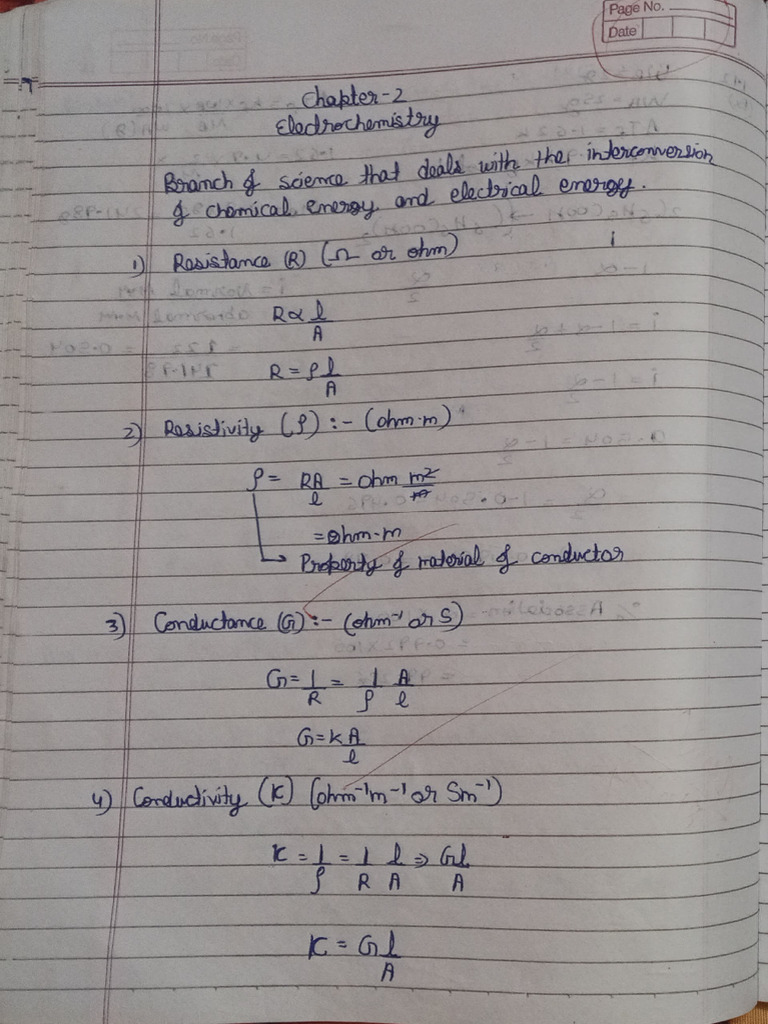 Page No.
Date
Chapter-2
Electrochemistry
Branch of science that deals with the interconversion
of chemical energy and electrical energy.
1) Resistance (R) (Ω or ohm)
R ∝ l/A
R = ρ l/A
2) Resistivity (ρ) :- (ohm·m)
ρ = RA/l = ohm m²/m
= ohm-m
→ Property of material of conductor
3) Conductance (G) :- (ohm⁻¹ or S)
G = 1/R = 1/ρ A/l
G = k A/l
4) Conductivity (K) (ohm⁻¹m⁻¹ or Sm⁻¹)
K = 1/ρ = 1/R l/A ⇒ Gl/A
K = G l/A